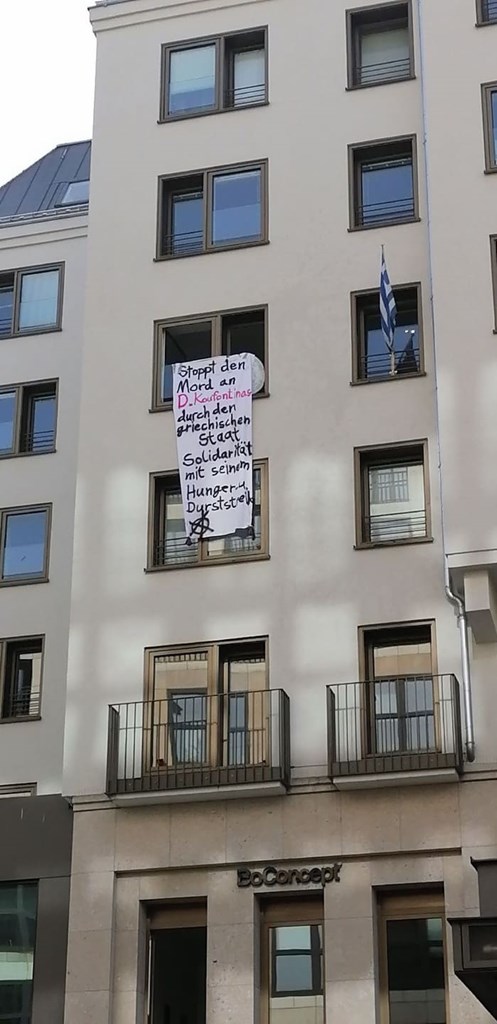 Stoppt den
Mord an
D. Koufontinas
durch den
griechischen
Staat
Solidarität
mit seinem
Hunger-u.
Durststreik
BoConcept